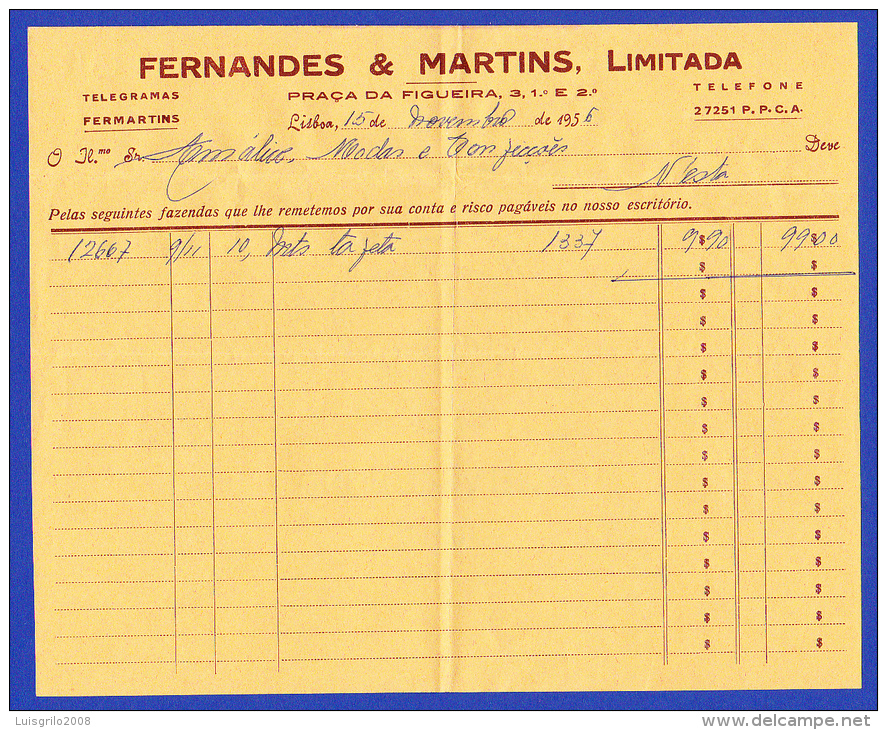 FERNANDES & MARTINS, LIMITADA
TELEGRAMAS
FERMARTINS
PRAÇA DA FIGUEIRA, 3, 1.º E 2.º
TELEFONE
27251 P. P. C. A.
Lisboa, 15 de novembro de 1956
O Il.mo Sr. Amálice, Modas e Confecções Deve
N'esta
Pelas seguintes fazendas que lhe remetemos por sua conta e risco pagáveis no nosso escritório.
12667 9/11 10, Mts tafeta 1337 9$90 99$00
$ $
$ $
$ $
$ $
$ $
$ $
$ $
$ $
$ $
$ $
$ $
$ $
$ $
$ $
$ $
Luisgrilo2008
www.delcampe.net